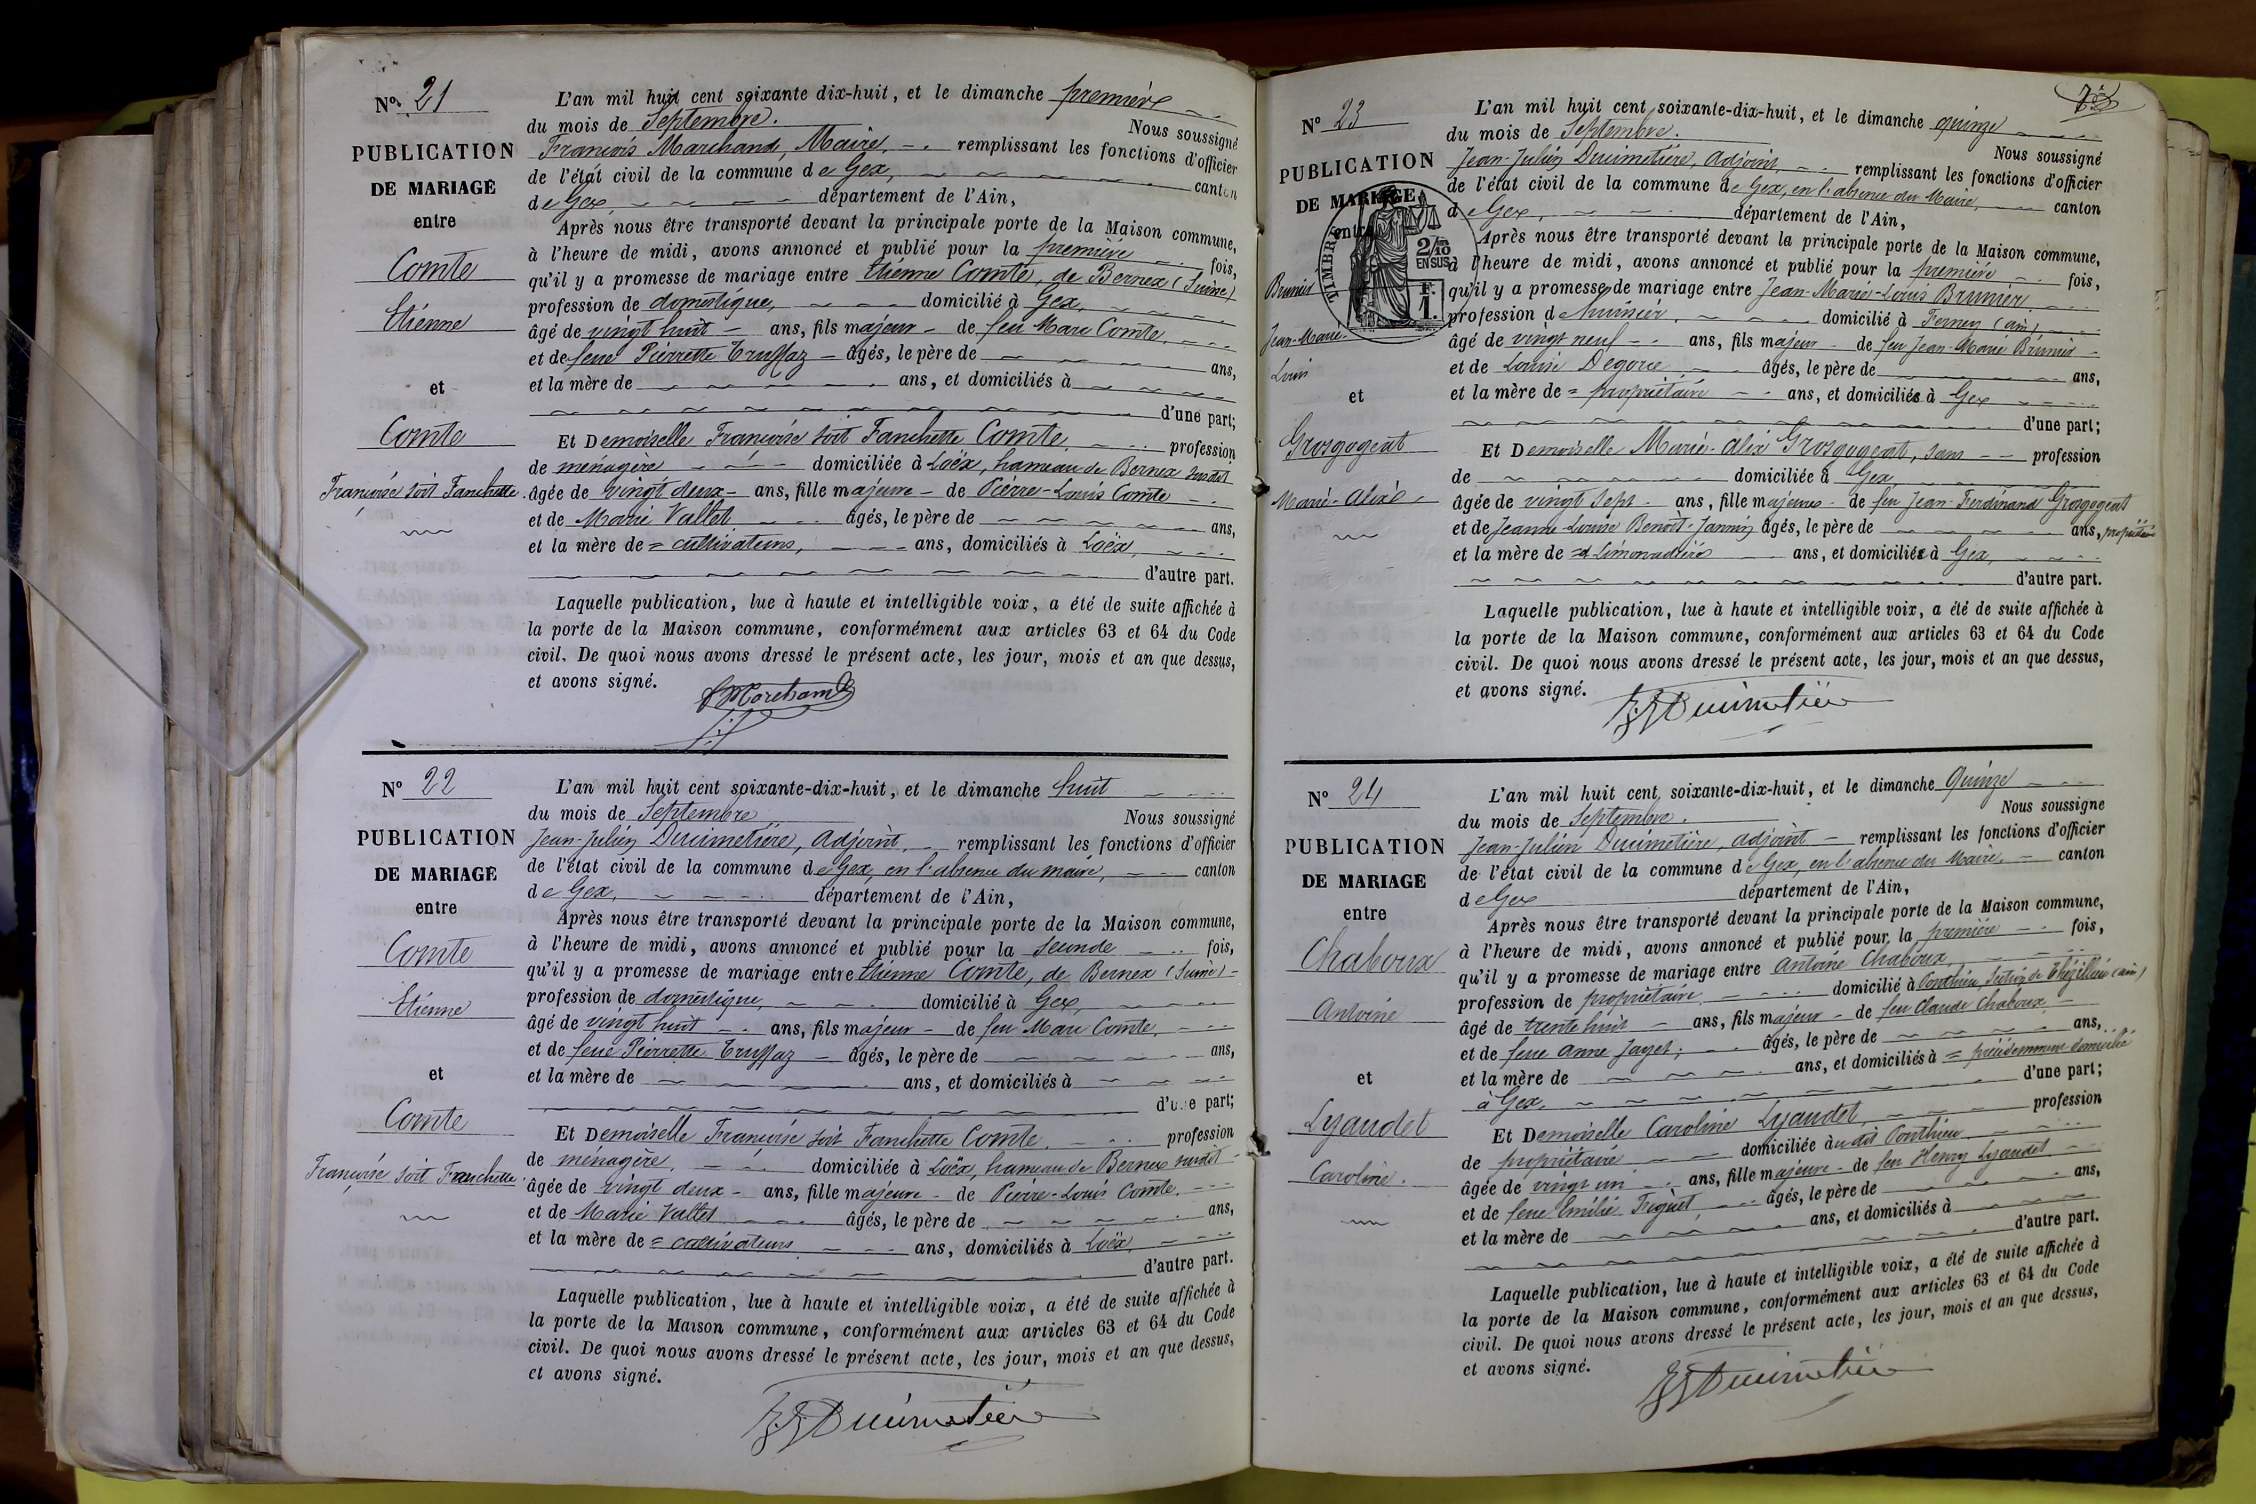 Nº 21
PUBLICATION
DE MARIAGE
entre
Comte
Etienne
et
Comte
Françoise soit Fanchette
L'an mil huit cent soixante dix-huit, et le dimanche premier
du mois de Septembre. Nous soussigné
François Marchand, Maire, remplissant les fonctions d'officier
de l'état civil de la commune de Gex, canton
de Gex, département de l'Ain,
Après nous être transporté devant la principale porte de la Maison commune,
à l'heure de midi, avons annoncé et publié pour la première fois,
qu'il y a promesse de mariage entre Etienne Comte, de Bernex (Suisse)
profession de domestique, domicilié à Gex,
âgé de vingt huit ans, fils majeur de feu Marc Comte,
et de feue Pierrette Truffaz âgés, le père de ans,
et la mère de ans, et domiciliés à
d'une part;
Et Demoiselle Françoise soit Fanchette Comte profession
de ménagère domiciliée à Loëx, hameau de Bernex susdit
âgée de vingt deux ans, fille majeure de Pierre-Louis Comte
et de Marie Vallet âgés, le père de ans,
et la mère de = cultivateurs, ans, domiciliés à Loëx,
d'autre part.
Laquelle publication, lue à haute et intelligible voix, a été de suite affichée à
la porte de la Maison commune, conformément aux articles 63 et 64 du Code
civil. De quoi nous avons dressé le présent acte, les jour, mois et an que dessus,
et avons signé.
F Marchand
Nº 22
PUBLICATION
DE MARIAGE
entre
Comte
Etienne
et
Comte
Françoise soit Fanchette
L'an mil huit cent soixante-dix-huit, et le dimanche huit
du mois de Septembre Nous soussigné
Jean-Julien Ducimetière, adjoint, remplissant les fonctions d'officier
de l'état civil de la commune de Gex, en l'absence du maire, canton
de Gex, département de l'Ain,
Après nous être transporté devant la principale porte de la Maison commune,
à l'heure de midi, avons annoncé et publié pour la seconde fois,
qu'il y a promesse de mariage entre Etienne Comte, de Bernex (Suisse)
profession de domestique, domicilié à Gex,
âgé de vingt huit ans, fils majeur de feu Marc Comte,
et de feue Pierrette Truffaz âgés, le père de ans,
et la mère de ans, et domiciliés à
d'une part;
Et Demoiselle Françoise soit Fanchette Comte profession
de ménagère, domiciliée à Loëx, hameau de Bernex susdit
âgée de vingt deux ans, fille majeure de Pierre-Louis Comte
et de Marie Vallet âgés, le père de ans,
et la mère de = cultivateurs ans, domiciliés à Loëx
d'autre part.
Laquelle publication, lue à haute et intelligible voix, a été de suite affichée à
la porte de la Maison commune, conformément aux articles 63 et 64 du Code
civil. De quoi nous avons dressé le présent acte, les jour, mois et an que dessus,
et avons signé.
JJ Ducimetière
Nº 23
PUBLICATION
DE MARIAGE
entre
TIMBRE
2/10
EN SUS
F.
1.
Brunier
Jean-Marie-
Louis
et
Grosgogeat
Marie-Alix
L'an mil huit cent soixante-dix-huit, et le dimanche quinze
du mois de Septembre. Nous soussigné
Jean-Julien Ducimetière, adjoint, remplissant les fonctions d'officier
de l'état civil de la commune de Gex, en l'absence du Maire, canton
de Gex, département de l'Ain,
Après nous être transporté devant la principale porte de la Maison commune,
à l'heure de midi, avons annoncé et publié pour la première fois,
qu'il y a promesse de mariage entre Jean-Marie-Louis Brunier
profession d domicilié à Ferney (ain)
âgé de vingt neuf ans, fils majeur de feu Jean-Marie Brunier
et de Louise Degorce âgés, le père de ans,
et la mère de = propriétaire ans, et domiciliés à Gex
d'une part;
Et Demoiselle Marie-Alix Grosgogeat, sans profession
de domiciliée à Gex
âgée de vingt sept ans, fille majeure de feu Jean-Ferdinand Grosgogeat
et de Jeanne-Louise Benoît-Jannin âgés, le père de ans, propriétaire
et la mère de = limonadière ans, et domiciliée à Gex,
d'autre part.
Laquelle publication, lue à haute et intelligible voix, a été de suite affichée à
la porte de la Maison commune, conformément aux articles 63 et 64 du Code
civil. De quoi nous avons dressé le présent acte, les jour, mois et an que dessus,
et avons signé.
JJ Ducimetière
Nº 24
PUBLICATION
DE MARIAGE
entre
Chaboux
Antoine
et
Lyaudet
Caroline.
L'an mil huit cent soixante-dix-huit, et le dimanche Quinze
du mois de Septembre. Nous soussigné
Jean-Julien Ducimetière, adjoint remplissant les fonctions d'officier
de l'état civil de la commune de Gex, en l'absence du Maire, canton
de Gex département de l'Ain,
Après nous être transporté devant la principale porte de la Maison commune,
à l'heure de midi, avons annoncé et publié pour la première fois,
qu'il y a promesse de mariage entre Antoine Chaboux,
profession de propriétaire domicilié à Ponthieu, Section de Thézillieu (ain)
âgé de trente huit ans, fils majeur de feu Claude Chaboux
et de feue Anne Jayet; âgés, le père de ans,
et la mère de ans, et domiciliés à = précédemment domicilié
à Gex. d'une part;
Et Demoiselle Caroline Lyaudet profession
de propriétaire domiciliée audit Ponthieu
âgée de vingt un ans, fille majeure de feu Henry Lyaudet
et de feue Emilie âgés, le père de ans,
et la mère de ans, et domiciliés à
d'autre part.
Laquelle publication, lue à haute et intelligible voix, a été de suite affichée à
la porte de la Maison commune, conformément aux articles 63 et 64 du Code
civil. De quoi nous avons dressé le présent acte, les jour, mois et an que dessus,
et avons signé.
JJ Ducimetière